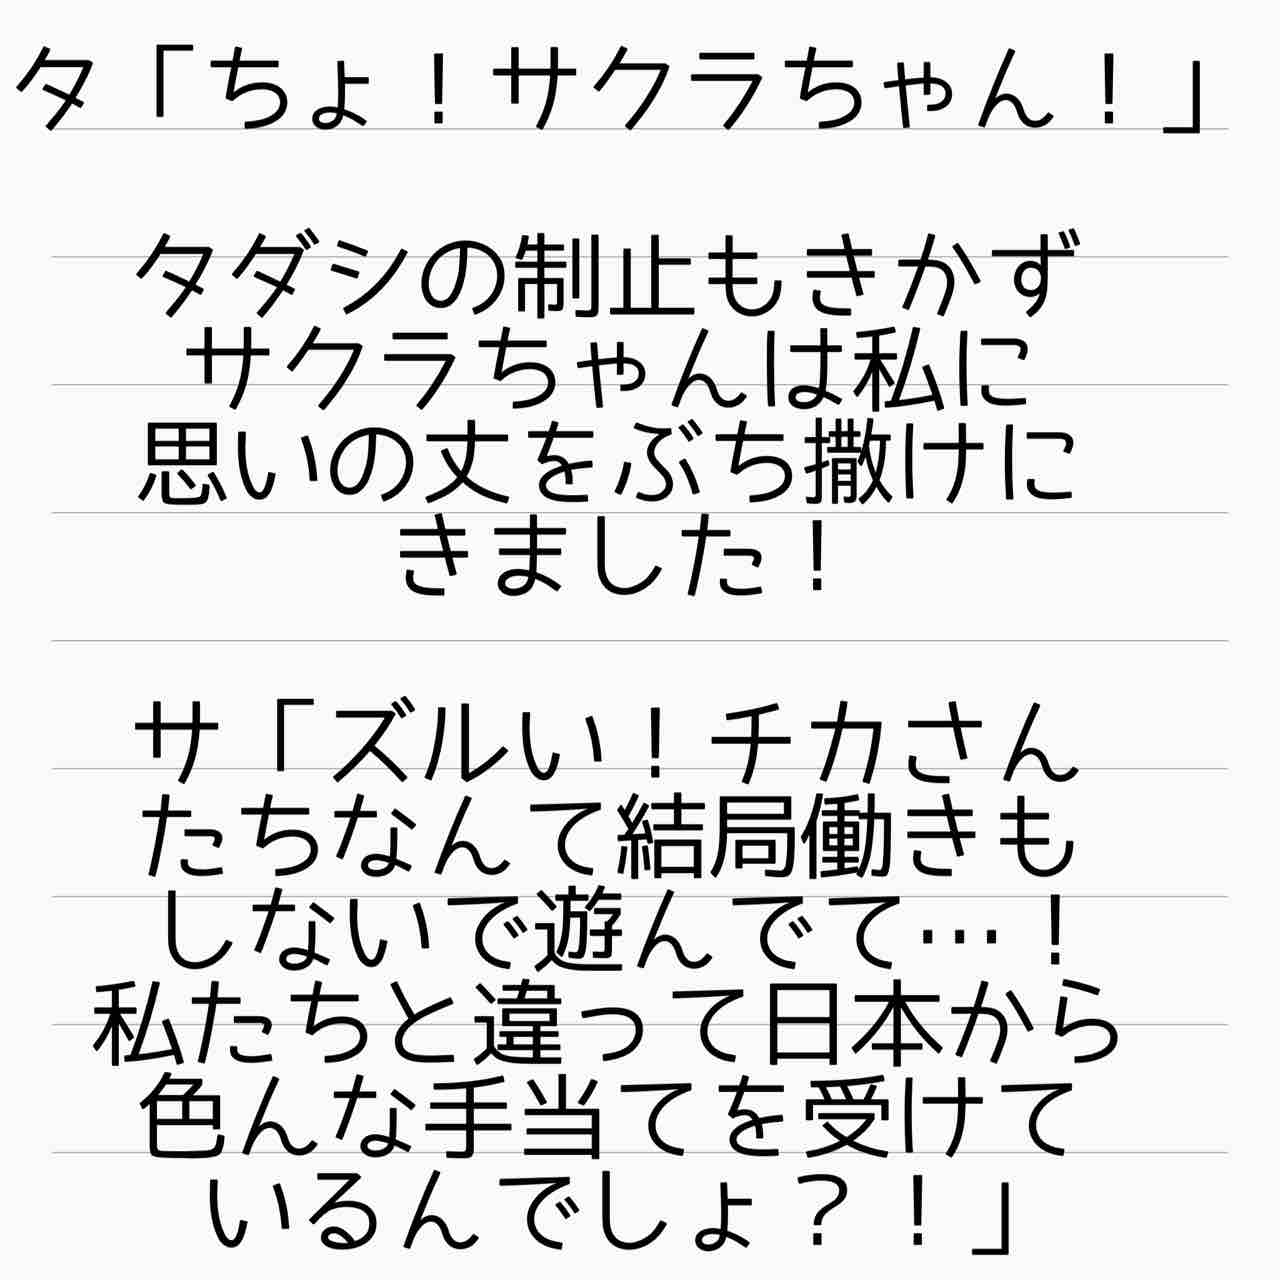 タ「ちょ！サクラちゃん！」
タダシの制止もきかず
サクラちゃんは私に
思いの丈をぶち撒けに
きました！
サ「ズルい！チカさん
たちなんて結局働きも
しないで遊んでて…！
私たちと違って日本から
色んな手当てを受けて
いるんでしょ？！」